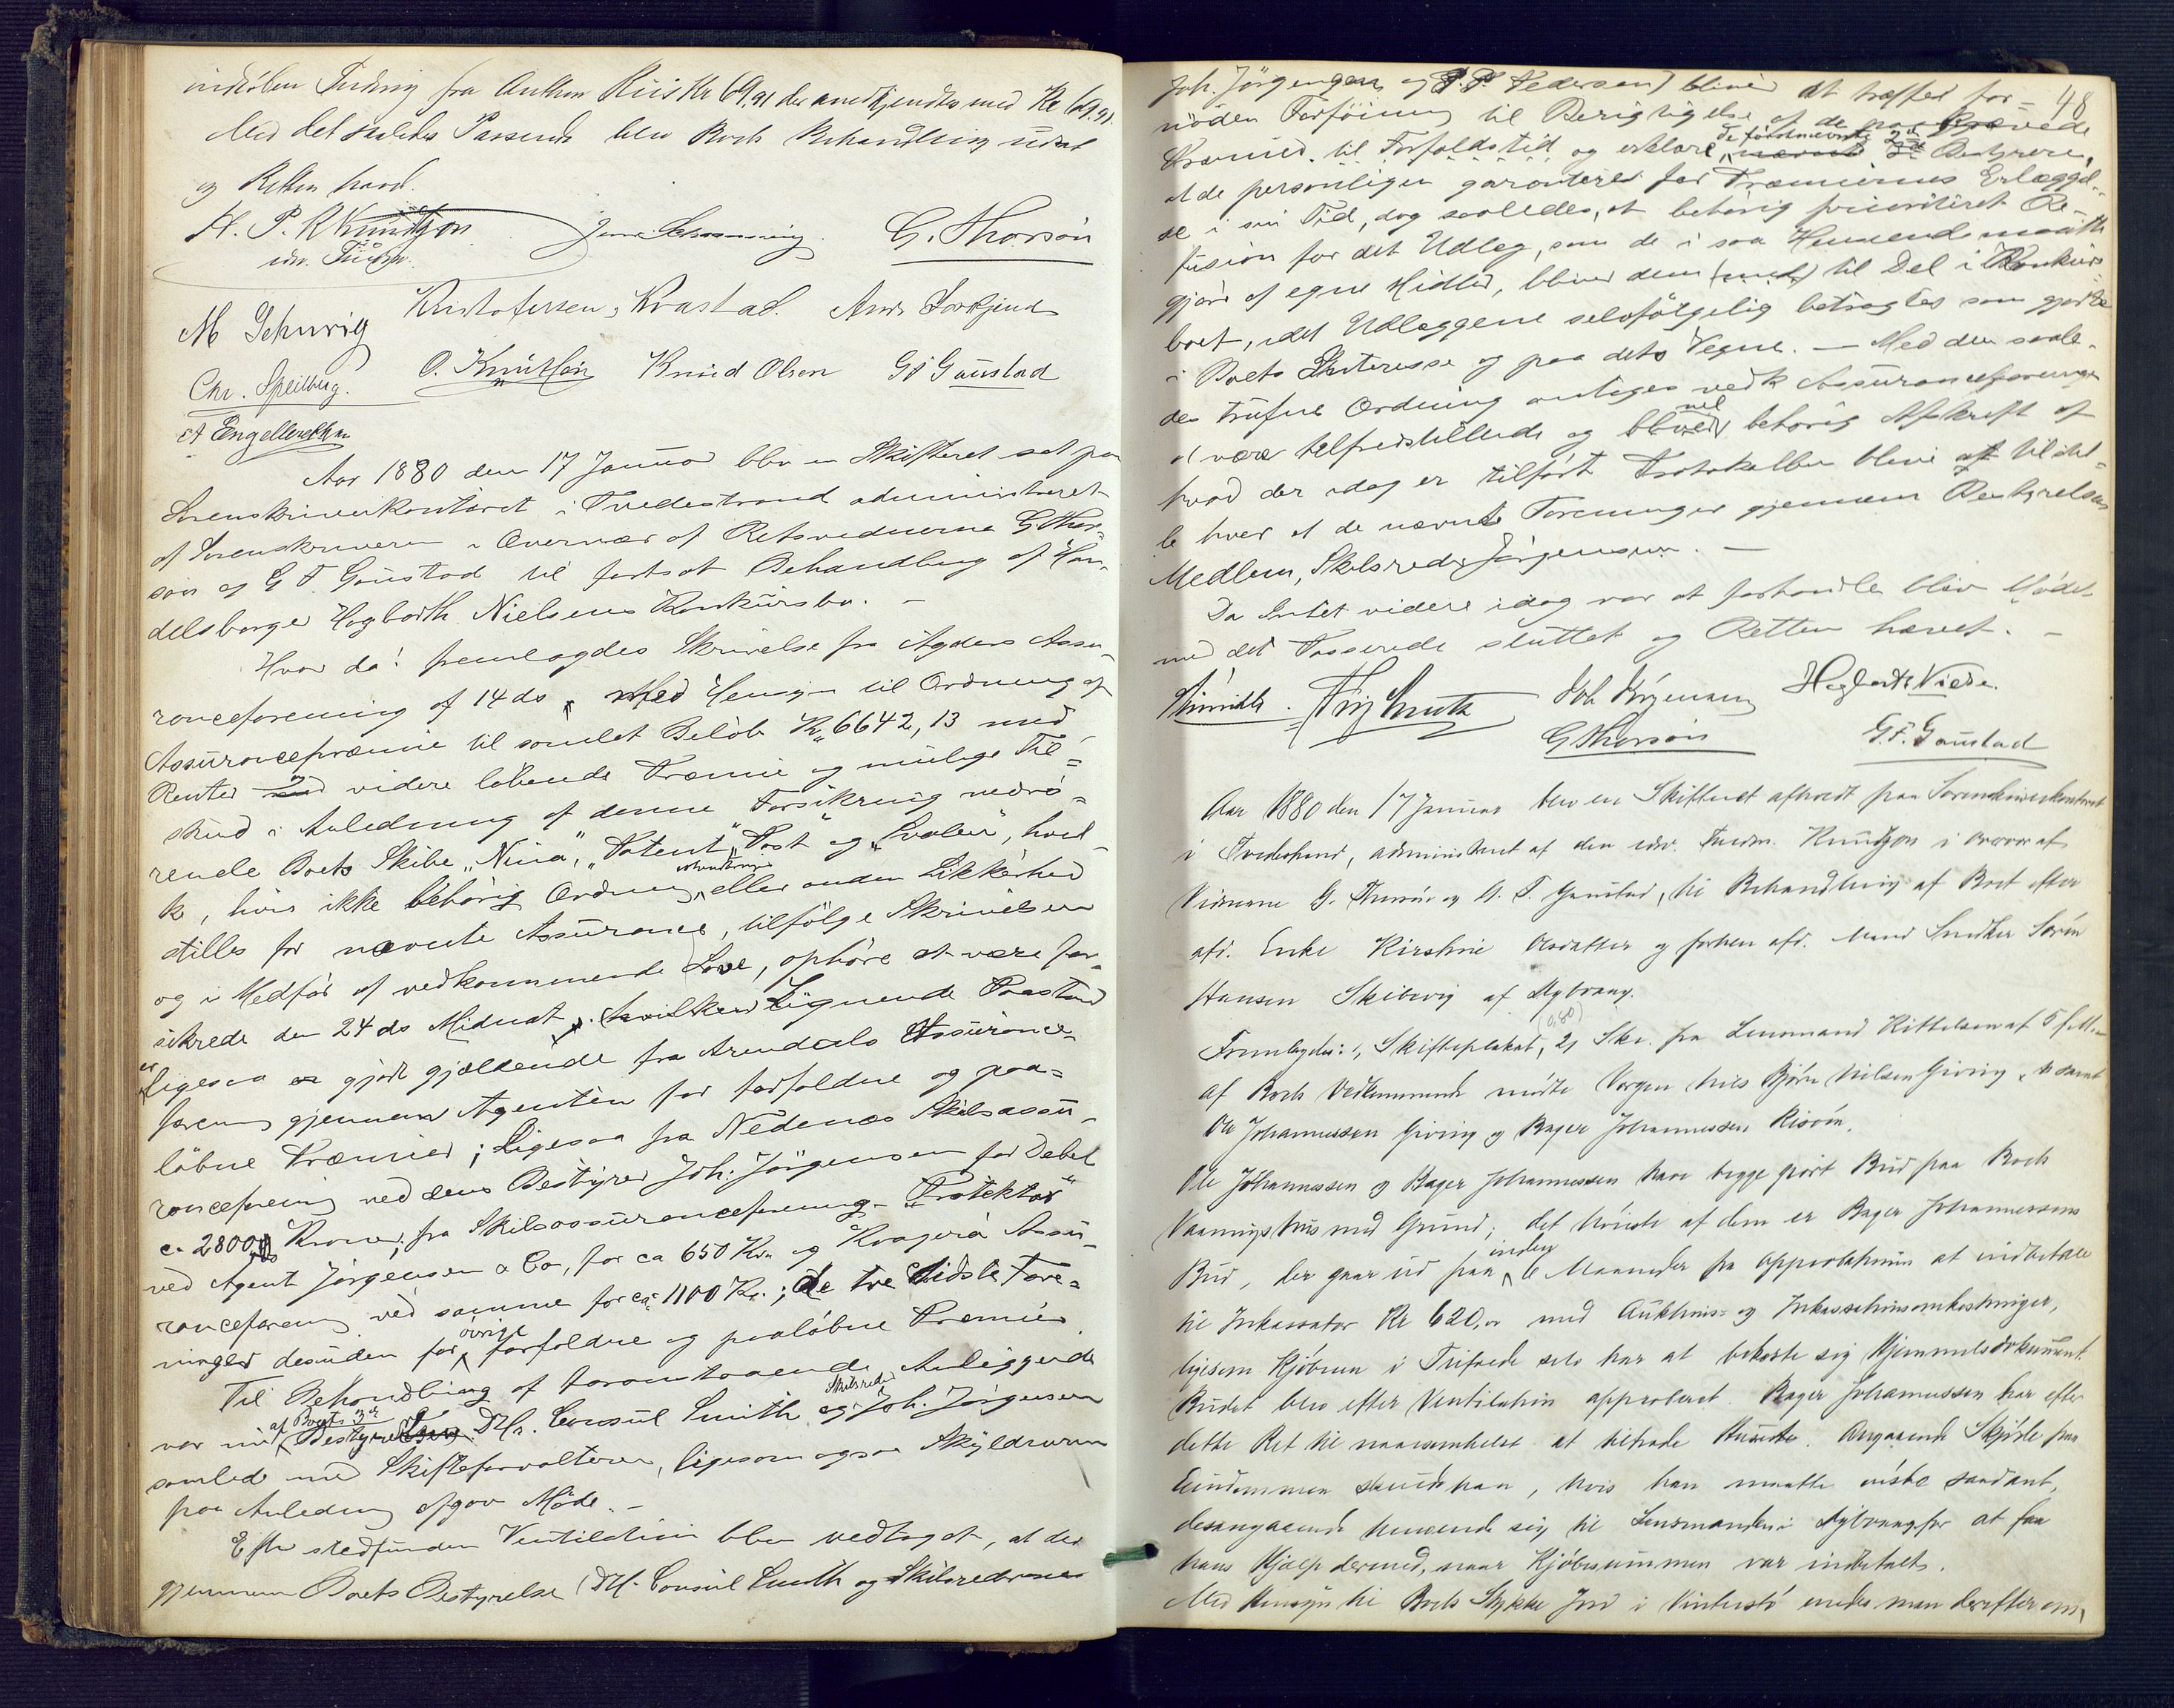 indløben Fordring fra Anthon Riis Kr 69,91 der anerkjendtes med Kr 69,91.
Med det saaledes Passerede blev Boets Behandling udsat
og Retten hævet.
H. P. R Knudtzon G. Thorsön
edsv. Fuldm.
M Schwrig Kristofersen, Kvastad.
Chr. Speilberg. O. Knutsön Knud Olsen G F Gaustad
Aar 1880 den 17 Januar blev en Skifteret sat paa
Sorenskriverkontoret i Tvedestrand administreret
af Sorenskriveren i Overvær af Retsvidnerne G Thor-
sön og G F. Gaustad til fortsat Behandling af Han-
delsborger Hagbarth Nielsens Konkursbo. –
Hvor da: fremlagdes Skrivelse fra Agders Assu-
ranceforening af 14 ds med Hensyn til Ordning af
Assurancepræmie til samlet Beløb Kr 6642,13 med
Renter videre løbende Præmie og mulige Til-
skud i Anledning af denne Forsikring vedrø-
rende Boets Skibe „Nina”, „Patent”, „Post” og „Svalen”, hvil-
ke, hvis ikke behørig Ordning eller anden Sikkerhed
stilles for nævnte Assurance, tilfölge Skrivelsen
og i Medför af vedkommende Love, ophöre at være for-
sikrede den 24 ds Midnat. Lignende Paastand
ligesaa er gjort gjældende fra Arendals Assurance-
forening gjennem Agenten for forfaldne og paa-
löbne Præmier; Ligesaa fra Nedenæs Skibsassu-
ranceforening ved dens Bestyrer Joh: Jörgensen for Debet
ca 2800 Kroner, fra Skibsassuranceforening „Protektor”
ved Agent Jörgensen & Co, for ca 650 Kr. og Kragerø Assu-
ranceforening ved samme for ca 1100 Kr.; de tre sidste Fore-
ninger desuden for övrige forfaldne og paalöbne Premier.
Til Behandling af foranstaaende Anliggende
var nu af Boets Bestyrelse DHr. Consul Smith og Skibsreder Joh. Jörgensen
samlede med Skifteforvalteren, ligesom ogsaa Skyldneren
paa Anledning afgav Möde. –
Efter stedfunden Ventilation blev vedtaget, at der
gjennem Boets Bestyrelse (DHr. Consul Smith og Skibsrederne
48
Joh. Jörgensen og P. P. Pedersen) bliver at træffes for-
nöden Forföining til Berigtigelse af de
Præmier til Forfaldstid og erklære de förstnævnte 2de Bestyrere,
at de personligen garanterer for Præmiernes Erlæggel-
se i sin Tid, dog saaledes, at behörig prioriteret Re-
fusion for det Udlæg, som de i saa Henseende maatte
gjøre af egne Midler, bliver dem til Del i Konkurs-
boet, idet Udlæggene selvfölgelig betragtes som gjorte
i Boets Interesse og paa dets Vegne. – Med den saale-
des trufne Ordning antages vedk Assuranceforeninger
at være tilfredsstillede og vil behörig Afskrift af
hvad der idag er tilfört Protokollen blive at tilstil-
le hver af de nævnte Foreninger gjennem Bestyrelsens
Medlem, Skibsreder Jörgensen. –
Da Intet videre idag var at forhandle blev Mödet
med det Passerede sluttet og Retten hævet. –
Joh Jörgensen Hagbarth Nielsen
G Thorsön G. F. Gaustad
Aar 1880 den 17 Januar blev en Skifteret afholdt paa Sorenskriverkontoret
i Tvedestrand, administreret af den edsv. Fuldm. Knudtzon i Overvær af
Vidnerne G. Thorsön og G. F. Gaustad, til Behandling af Boet efter
afd. Enke Kirstine Olsdatter og forhen afd. Mand Snedker Sören
Hansen Skibvig af Dybvaag.
Fremlagdes: 1, Skifteplakat, (0,80) 2, Skr. fra Lensmand Kittelsen af 5
af Boets Vedkommende mödte Værgen Nils Björn Nilsen Giving, samt
Ole Johannessen Giving og Bager Johannessen Risöen.
Ole Johannessen og Bager Johannessen have begge gjort Bud paa Boets
Vaaningshus med Grund; det höieste af dem er Bager Johannessens
Bud, der gaar ud paa inden 6 Maaneder fra Approbationen at indbetale
til Inkassator Kr 620,00 med Auktions- og Inkassationsomkostninger,
ligesom Kjöberen i Tilfælde selv har at bekoste sig Hjemmelsdokument.
Budet blev efter Ventilation approberet. Bager Johannessen har efter
dette Ret til naarsomhelst at tiltræde Huset. Angaaende Skjöde paa
Eiendommen skulde han, hvis han maatte önske saadant,
desangaaende henvende sig til Lensmanden i Dybvaag for at faa
hans Hjælp dermed, naar Kjöbesummen var indbetalt.
Med Hensyn til Boets Stykke Jord i enedes man derefter om,